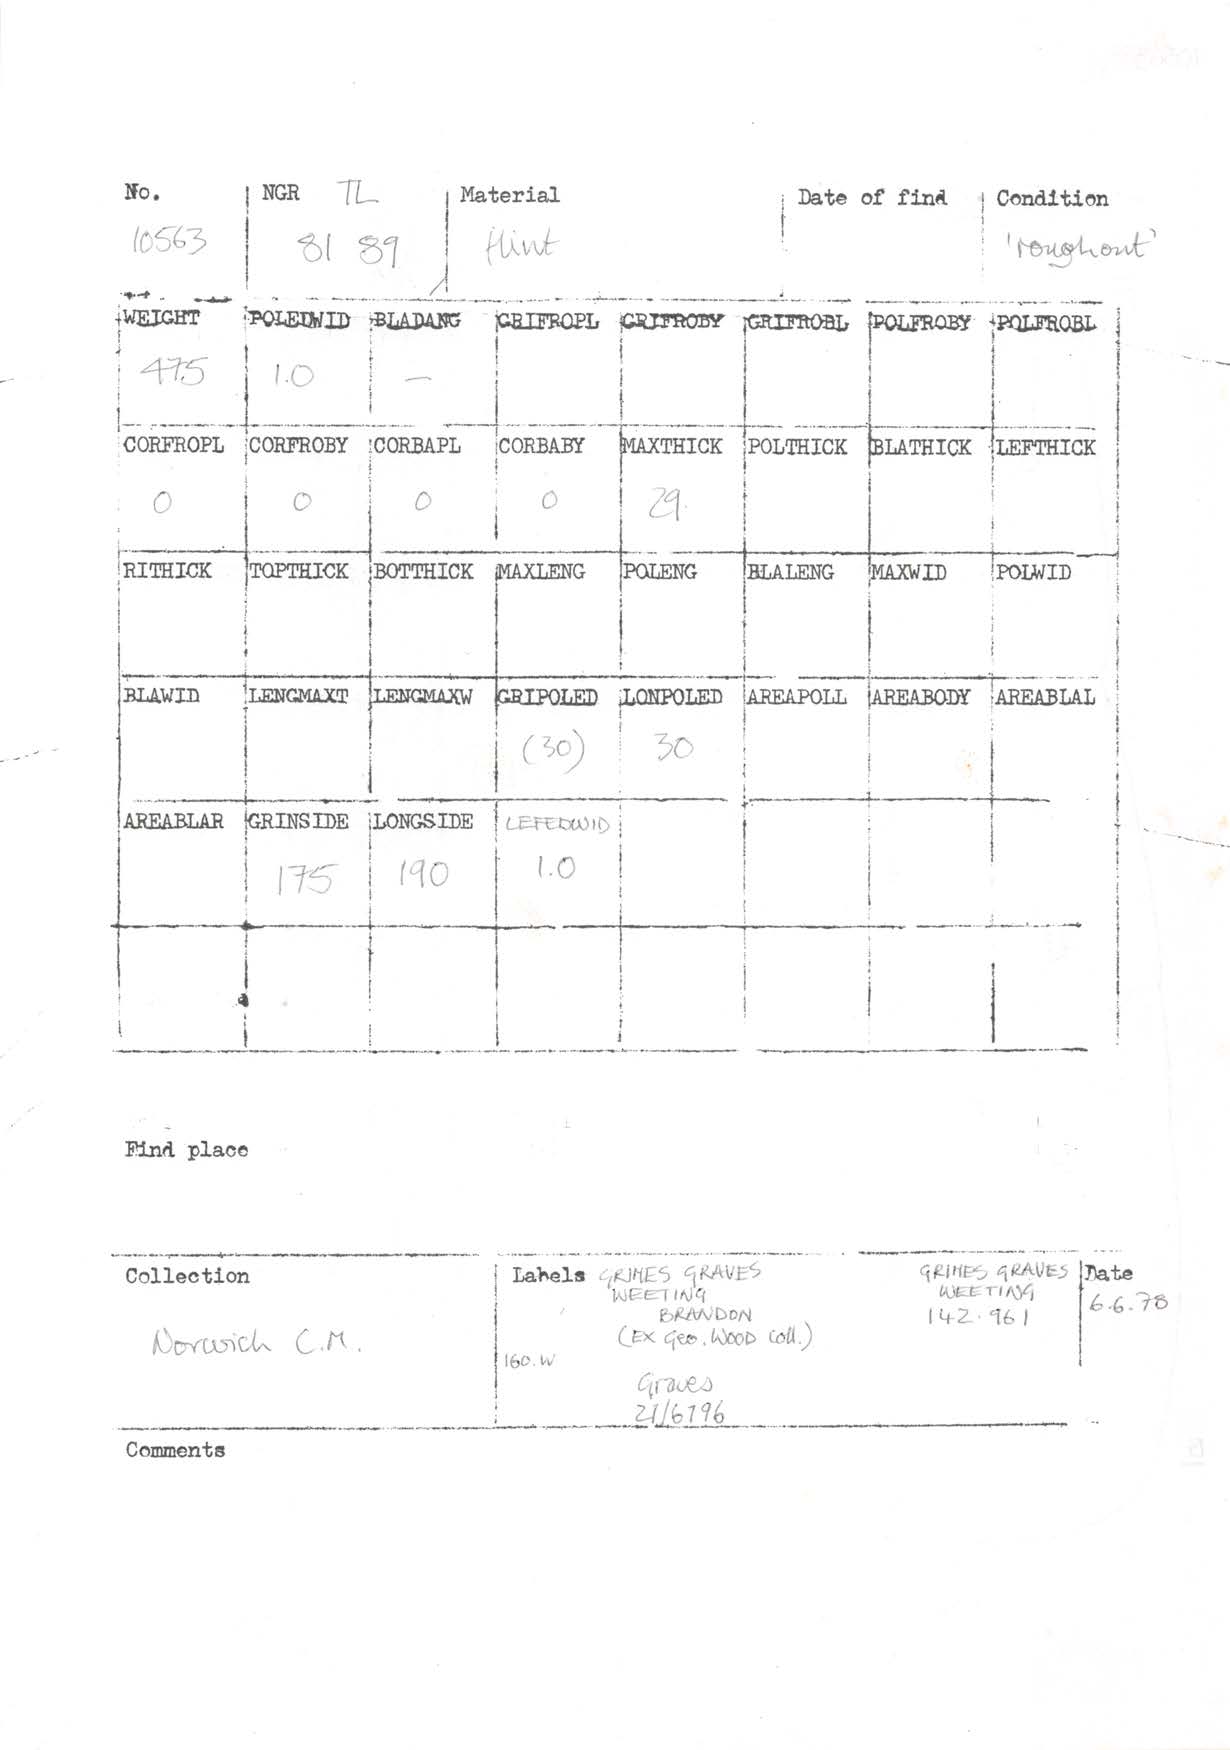 No. NGR TL Material Date of find Condition
10563 81 89 flint 'roughout'
WEIGHT POLEDWID BLADANG GRIFROPL GRIFROBY GRIFROBL POLFROBY POLFROBL
475 1.0 —
CORFROPL CORFROBY CORBAPL CORBABY MAXTHICK POLTHICK BLATHICK LEFTHICK
0 0 0 0 29
RITHICK TOPTHICK BOTTHICK MAXLENG POLENG BLALENG MAXWID POLWID
BLAWID LENGMAXT LENGMAXW GRIPOLED LONPOLED AREAPOLL AREABODY AREABLAL
(30) 30
AREABLAR GRINSIDE LONGSIDE LEFEDWID
175 190 1.0
Find place
Collection
Norwich C.M.
Labels GRIMES GRAVES
WEETING
BRANDON
(EX Geo. WOOD Coll.)
160.W
Graves
21/6196
GRIMES GRAVES
WEETING
142.961
Date
6.6.78
Comments